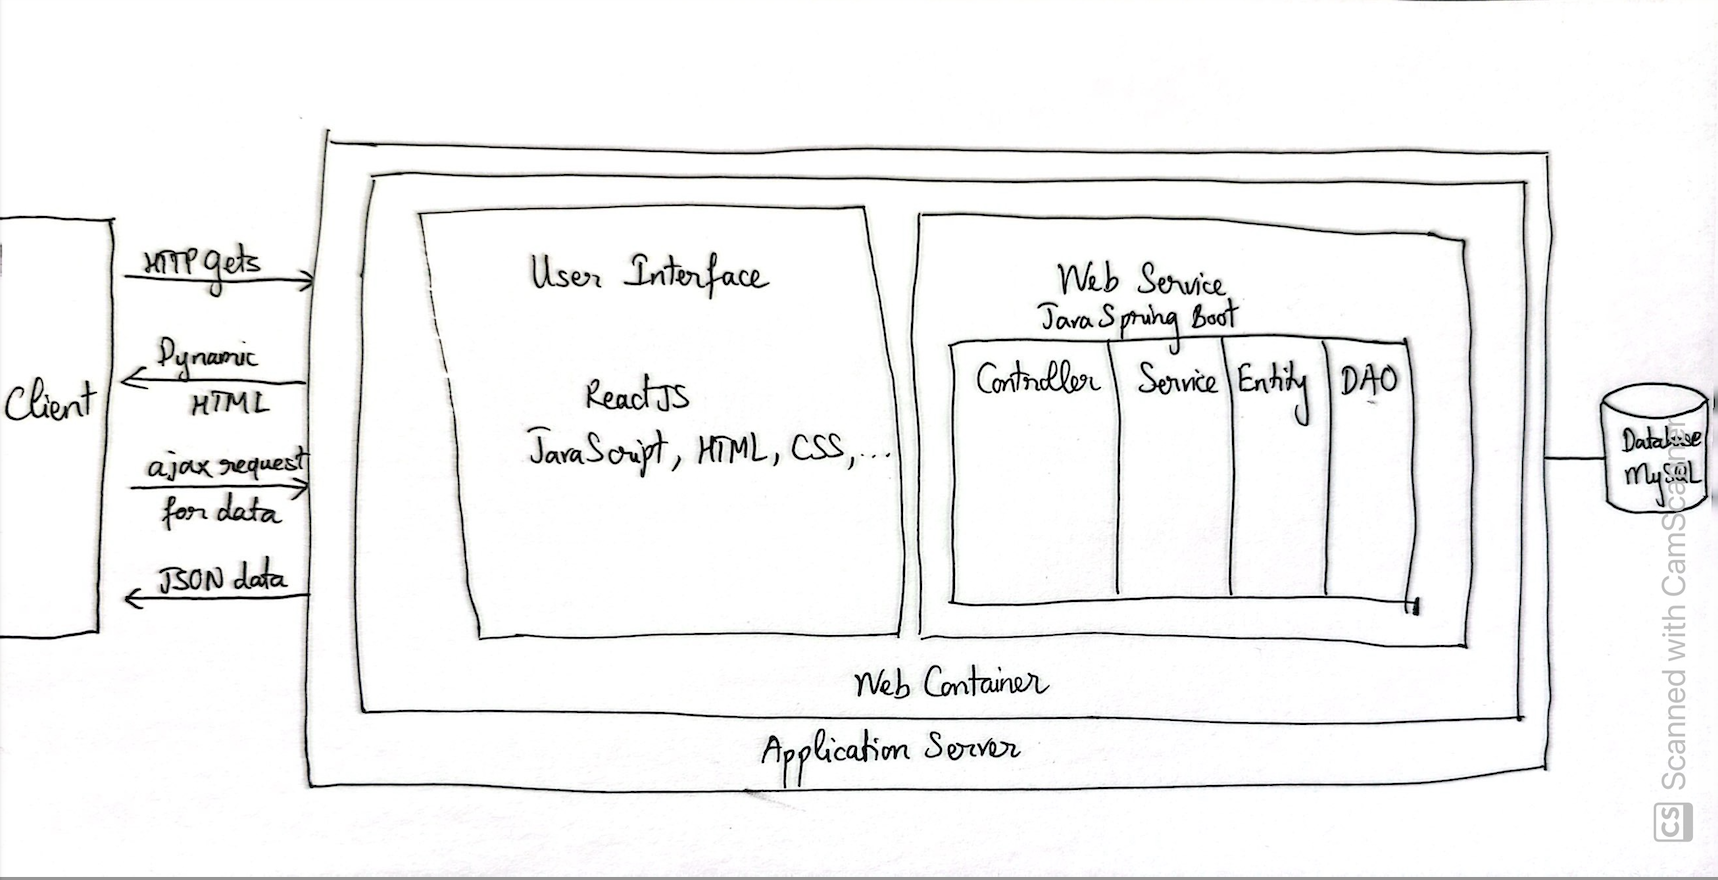 Client
HTTP gets
Dynamic
HTML
ajax request
for data
JSON data
User Interface
ReactJS
JavaScript, HTML, CSS,...
Web Service
Java Spring Boot
Controller
Service
Entity
DAO
Web Container
Application Server
Database
MySQL
CS Scanned with CamScanner